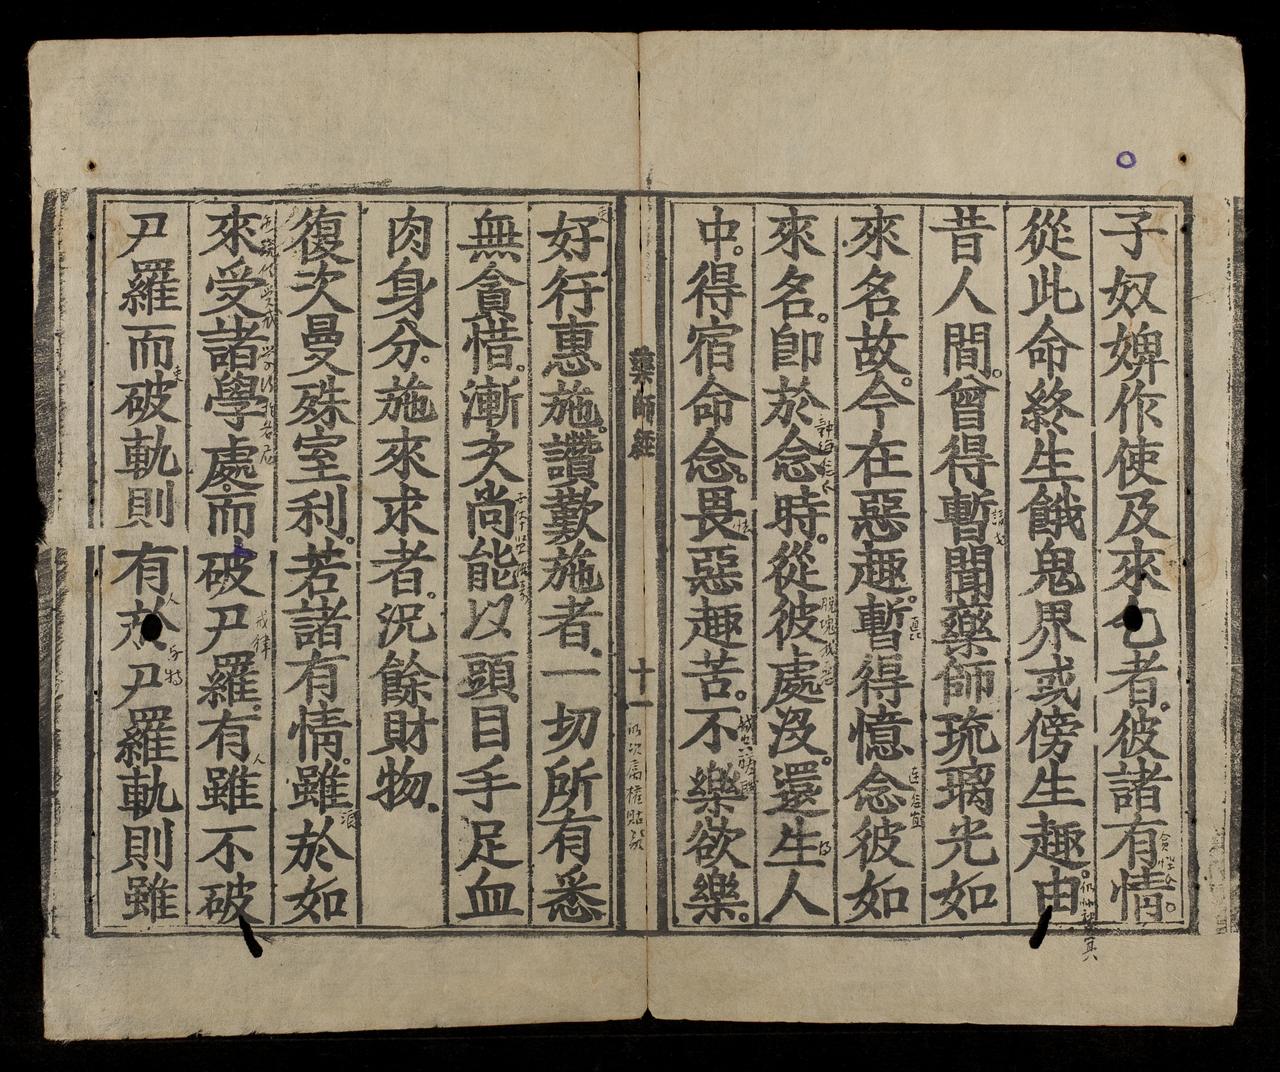 子奴婢作使及來乞者。彼諸有情。
從此命終生餓鬼界或傍生趣。由
昔人間。曾得暫聞藥師琉璃光如
來名故。今在惡趣。暫得憶念彼如
來名。卽於念時。從彼處沒。還生人
中。得宿命念。畏惡趣苦。不樂欲樂。
藥師經
十一
好行惠施。讚歎施者。一切所有悉
無貪惜。漸次尚能以頭目手足血
肉身分。施來求者。況餘財物。
復次曼殊室利。若諸有情。雖於如
來受諸學處。而破尸羅。有雖不破
尸羅而破軌則有於尸羅軌則雖